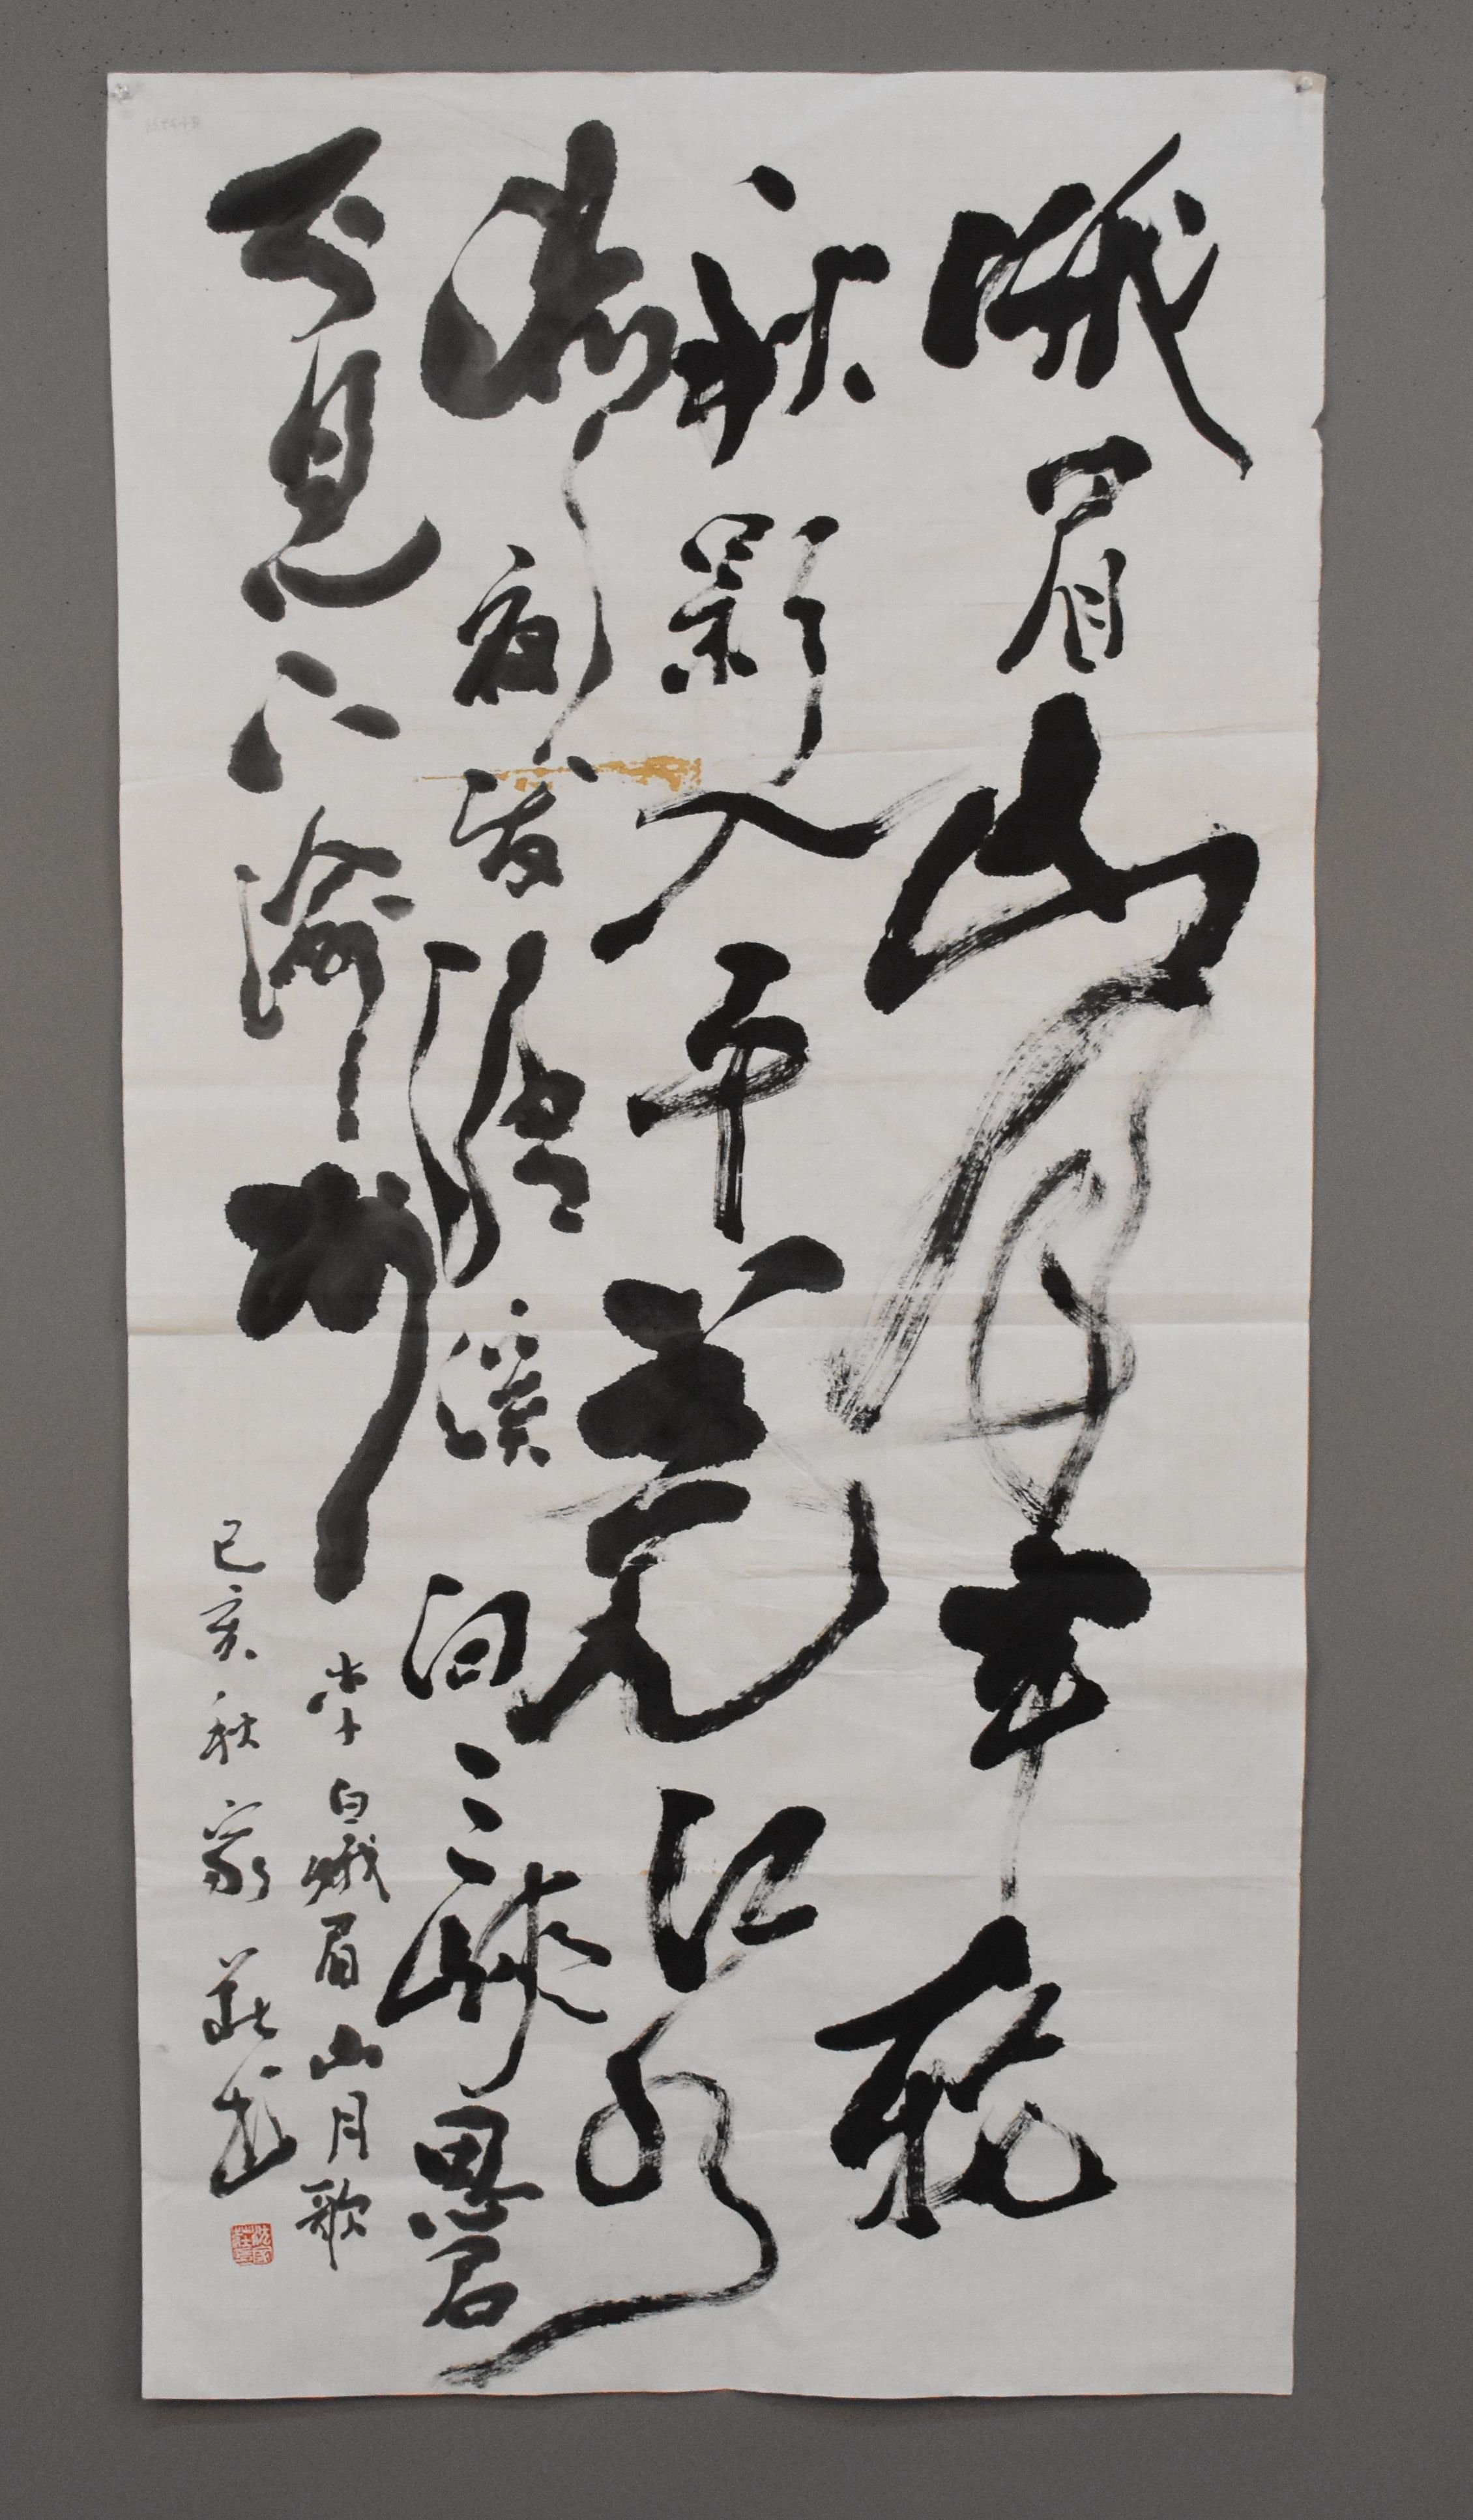 峨眉山月半輪
秋影入平羌江水
流夜發清溪向三峽思君
不見下渝州
李白峨眉山月歌
己亥秋家莊書
沈家莊